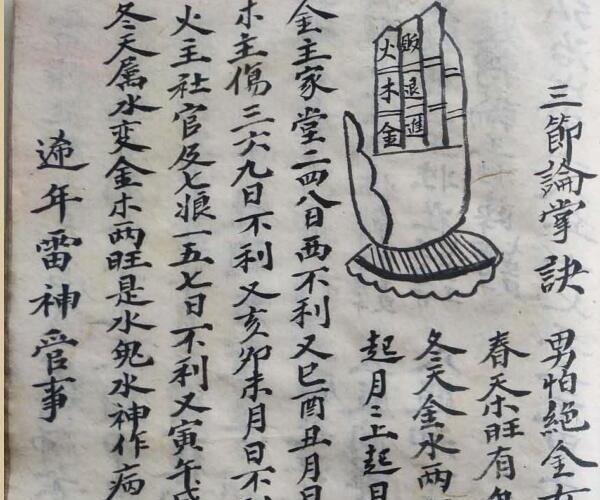 三節論掌訣
男怕絕金
春天木旺有
冬天金水兩
起月二上起日
火 敗
木 退
金 進
金主家堂二四八日西不利又巳酉丑月日
木主傷三六九日不利又亥卯未月日不
火主社官及七狼一五七日不利又寅午戌
冬天属水变金木两旺是水鬼水神作病
逓年雷神管事